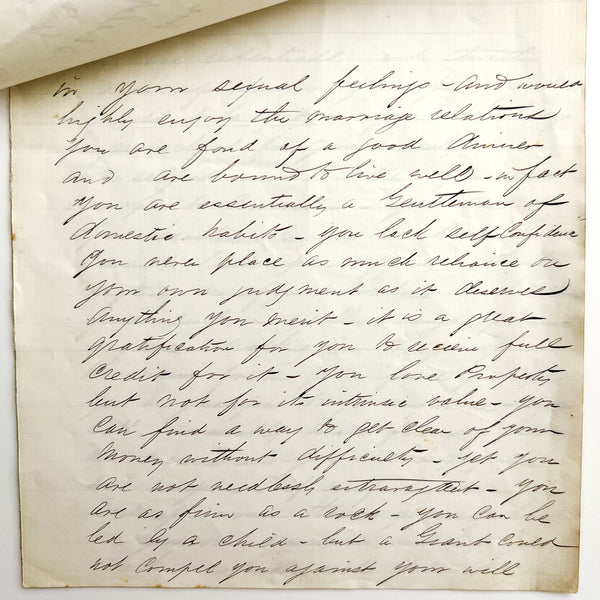 in your sexual feelings - and would
highly enjoy the marriage relations
you are fond of a good dinner
and are bound to live well - in fact
you are essentially a Gentleman of
domestic habits - you lack self Confidence
you never place as much reliance on
your own judgment as it deserves
Anything you merit - it is a great
gratification for you to recieve full
credit for it - you love Property
but not for its intrinsic value - you
can find a way to get clear of your
money without difficulty - yet you
are not needlessly extravagant - you
are as firm as a rock - you can be
led by a child - but a Giant could
not compel you against your will